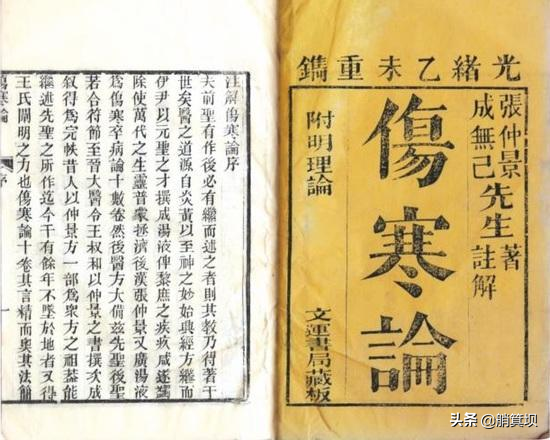 光緒乙未重鐫
張仲景
成無己
先生
著
註解
傷寒論
附明理論
文運書局藏板
注解傷寒論序
夫前聖有作後必有繼而述之者則其教乃得著于
世矣醫之道源自炎黃以至神之妙始典經方繼而
伊尹以元聖之才撰成湯液俾黎庶之疾疚咸遂蠲
除使萬代之生靈普蒙拯濟後漢張仲景又廣湯液
爲傷寒卒病論十數卷然後醫方大備茲先聖後聖
若合符節至晉太醫令王叔和以仲景之書撰次成
敘得爲完帙昔人以仲景方一部爲衆方之祖葢能
繼述先聖之所作迄今千有餘年不墜於地者又得
王氏闡明之力也傷寒論十卷其言精而奧其法簡
傷寒論 序 一
头条 @箕坝